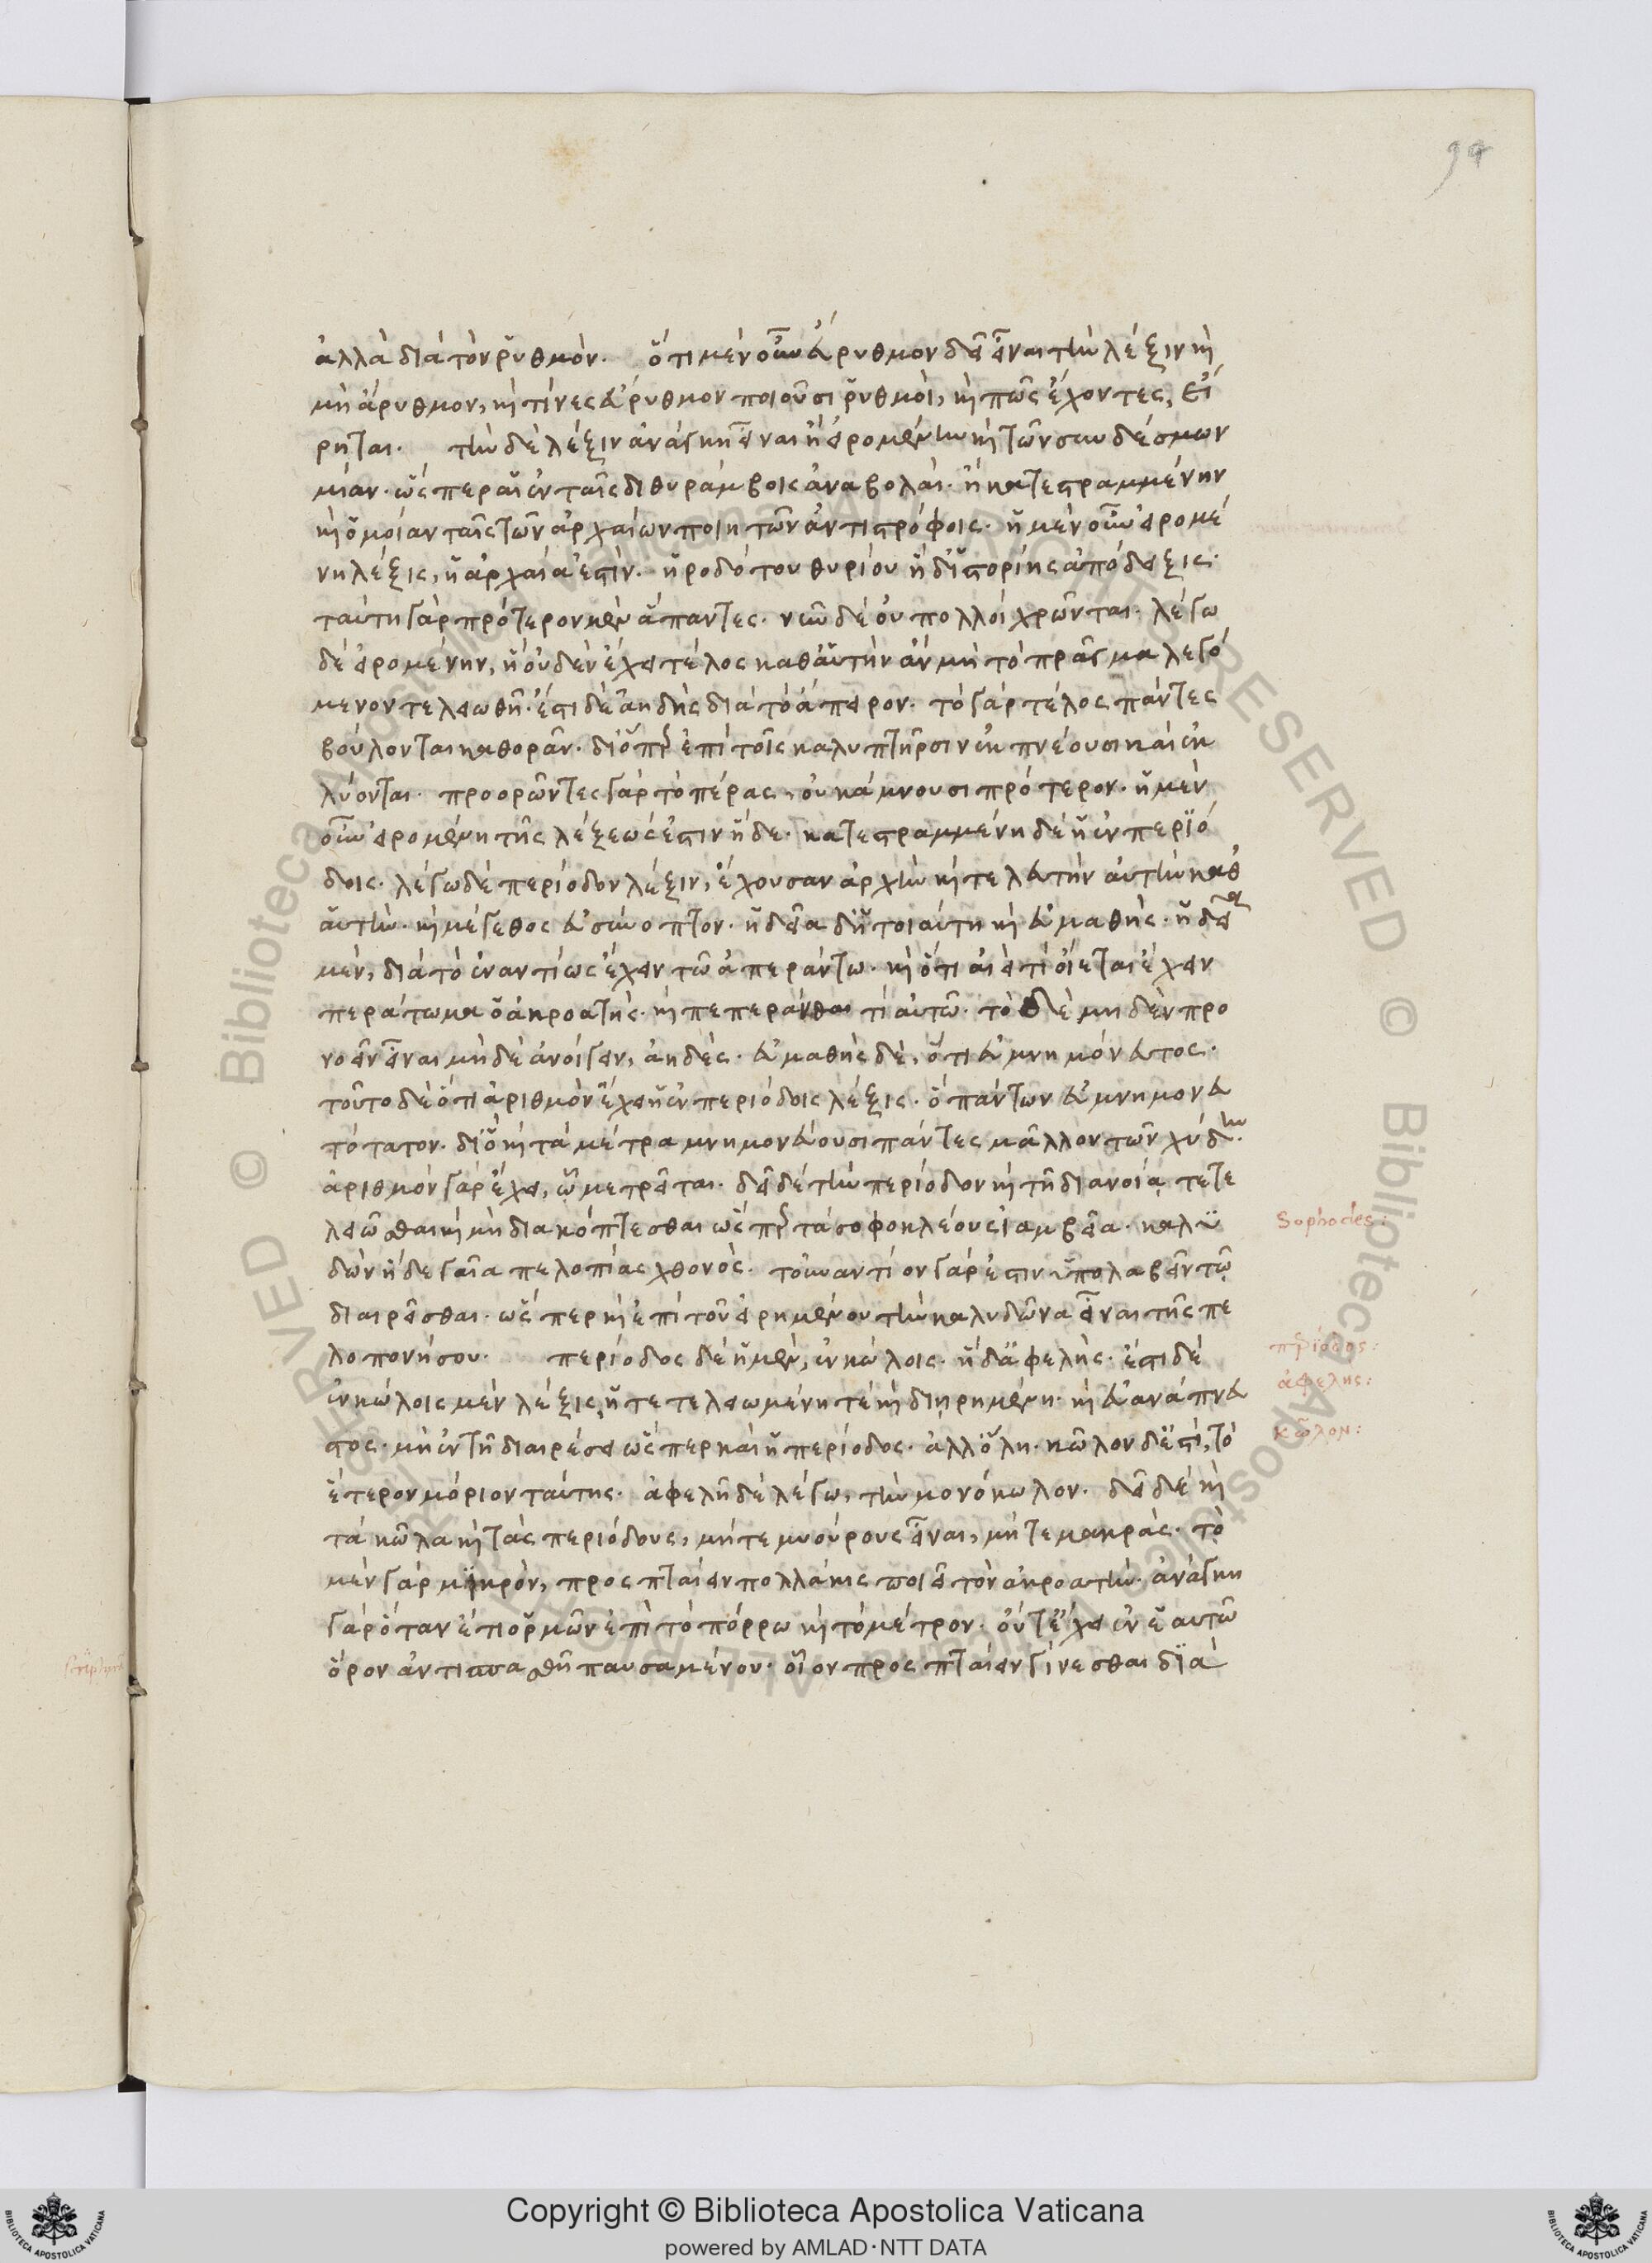 94
ἀλλὰ διὰ τὸν ῥυθμόν. ὅτι μὲν οὖν εὔρυθμον δεῖ εἶναι τὴν λέξιν καὶ
μὴ ἄρυθμον, καὶ τίνες εὔρυθμον ποιοῦσι ῥυθμοὶ, καὶ πῶς ἔχοντες, εἴ
ρηται. τὴν δὲ λέξιν ἀνάγκη εἶναι ἢ εἰρομένην καὶ τῶ συνδέσμω
μίαν· ὥσπερ αἱ ἐν ταῖς διθυράμβοις ἀναβολαί· ἢ κατεστραμμένην
καὶ ὁμοίαν ταῖς τῶν ἀρχαίων ποιητῶν ἀντιστρόφοις. ἡ μὲν οὖν εἰρομέ
νη λέξις, ἡ ἀρχαία ἐστὶν. ἡροδότου θυρίου ἥδ' ἱστορίης ἀπόδειξις.
ταύτη γὰρ πρότερον μὲν ἅπαντες. νῦν δὲ οὐ πολλοὶ χρῶνται. λέγω
δὲ εἰρομενην, ἣ οὐδὲν ἔχει τέλος καθ' αὑτὴν ἂν μὴ τὸ πρᾶγμα λεγό
μενον τελειωθῆ. ἔστι δὲ ἀηδὴς διὰ τὸ ἄπειρον. τὸ γὰρ τέλος πάντες
βούλονται καθορᾶν. διόπερ ἐπὶ τοῖς καλυπτῆρσιν ἐκπνέουσι καὶ ἐκ
λύονται. προορῶντες γὰρ τὸ πέρας, οὐ κάμνουσι πρότερον. ἡ μὲν
οὖν εἰρομένη τῆς λέξεώς ἐστιν ἥδε. κατεστραμμένη δὲ ἡ ἐν περιό
δοις. λέγω δὲ περίοδον λέξιν, ἔχουσαν ἀρχὴν καὶ τελευτὴν αὐτὴν καθ
αὑτὴν. καὶ μέγεθος εὐσύνοπτον. ἡδεῖα δ' ἡ τοιαύτη καὶ εὐμαθής. ἡδεῖα
μὲν, διὰ τὸ ἐναντίως ἔχειν τῶ ἀπεράντω. καὶ ὅτι αἰεί τι οἴεται ἔχειν
περάτωμα ὁ ἀκροατής. καὶ πεπεράνθαι τι αὑτῶ. τὸ δὲ μηδὲν προ
νοεῖν εἶναι μὴ δὲ ἀνοίγειν, ἀηδές. εὐμαθὴς δὲ, ὅτι εὐμνημόνευτος.
τοῦτο δὲ ὅτι ἀριθμὸν ἔχει ἡ ἐν περιόδοις λέξις. ὃ πάντων εὐμνημονευ
τότατον. διὸ καὶ τὰ μέτρα μνημονεύουσι πάντες μᾶλλον τῶν χύδην.
ἀριθμὸν γὰρ ἔχει, ᾧ μετρεῖται. δεῖ δὲ τὴν περίοδον καὶ τῆ διανοίᾳ τετε
λειῶσθαι καὶ μὴ διακόπτεσθαι ὥσπερ τὰ σοφοκλέους ἰαμβεῖα. καλυ
δὼν ἥδε γαῖα πελοπίας χθονὸς. τοὐναντίον γάρ ἐστιν ὑπολαβεῖν τῷ
διαιρεῖσθαι. ὥσπερ καὶ ἐπὶ τοῦ εἰρημένου τὴν καλυδῶνα εἶναι τῆς πε
λοπονήσου. περίοδος δὲ ἡ μὲν, ἐν κώλοις. ἡ δ' ἀφελής. ἔστι δὲ
ἐν κώλοις μὲν λέξις, ἡ τετελειωμένη τὲ καὶ διῃρημένη. καὶ εὐανάπνευ
στος. μὴ ἐν τῆ διαιρέσει ὥσπερ καὶ ἡ περίοδος. ἀλλ' ὅλη. κῶλον δ' ἐστὶ, τὸ
ἕτερον μόριον ταύτης. ἀφελῆ δὲ λέγω, τὴν μονόκωλον. δεῖ δὲ καὶ
τὰ κῶλα καὶ τὰς περιόδους, μήτε μυούρους εἶναι, μήτε μακράς. τὸ
μὲν γὰρ μικρὸν, προσπταίειν πολλάκις ποιεῖ τὸν ἀκροατὴν. ἀνάγκη
γὰρ ὅταν ἔτι ὁρμῶν ἐπὶ τὸ πόρρω καὶ τὸ μέτρον. οὗ τε ἔχει ἐν ἑαυτῶ
ὅρον ἀντισπασθῆ παυσαμένου. οἷον προσπταίειν γίνεσθαι διὰ
Sophocles:
περίοδος:
ἀφελης:
κῶλον:
Copyright © Biblioteca Apostolica Vaticana
powered by AMLAD·NTT DATA